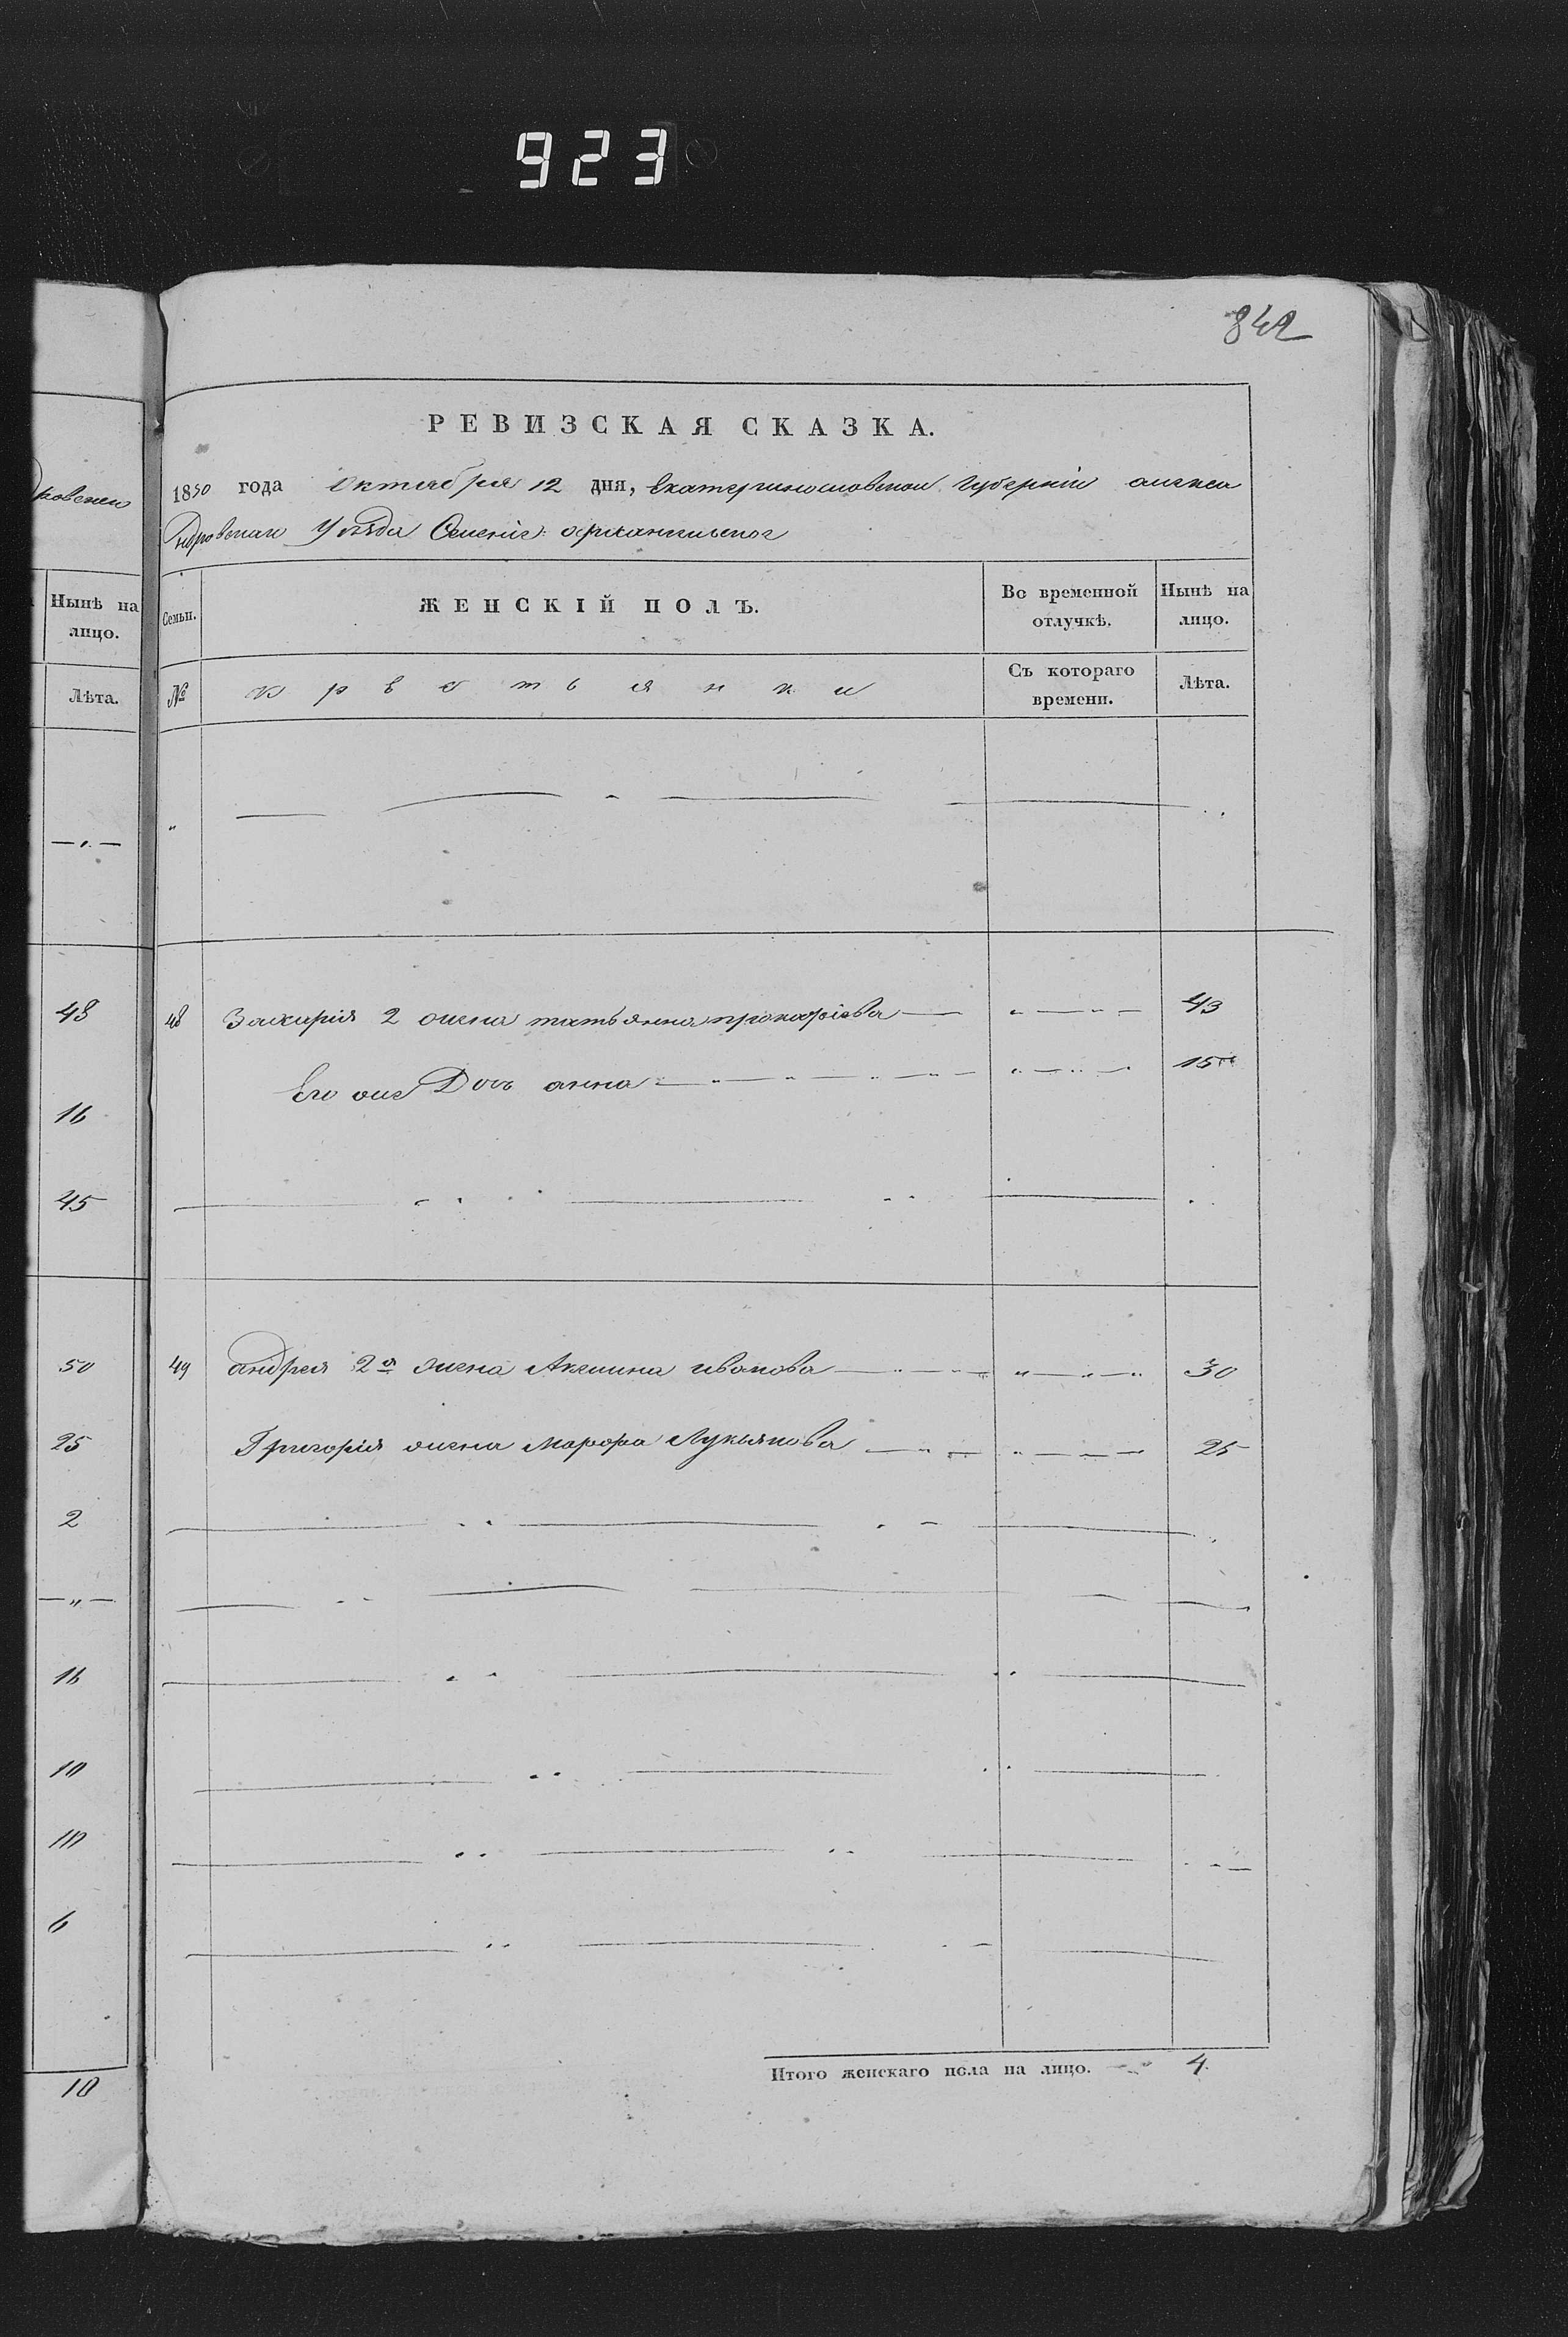 923
842
РЕВИЗСКАЯ СКАЗКА.
1850 года Октября 12 дня, Екатеринославской Губерніи алекса
ндровскаго Уезда Селеніе архангельског
дровскаго
Нынѣ на лицо.
Лѣта.
Семьи.
ЖЕНСКІЙ ПОЛЪ.
Во временной отлучкѣ.
Нынѣ на лицо.
№
крестьянки
Съ котораго времени.
Лѣта.
48
16
45
50
25
2
16
10
10
6
10
48 Захарія 2 жена татьянна прокофіева 43
Его же Дочь анна 15
49 андрея 2й жена Акилина иванова 30
Григорія жена Марфа Лукьянова 25
Итого женскаго пола на лицо. 4